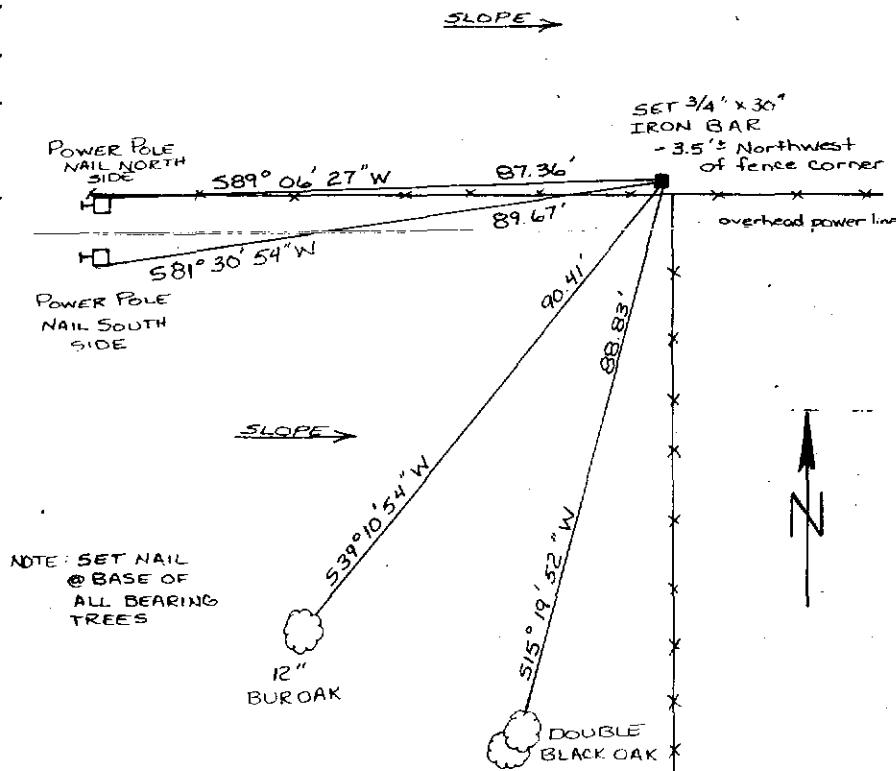 SLOPE
SET 3/4" x 30"
IRON BAR
- 3.5'± Northwest
of fence corner
POWER POLE
NAIL NORTH
SIDE
S89° 06' 27" W
87.36'
89.67'
overhead power line
S81° 30' 54" W
POWER POLE
NAIL SOUTH
SIDE
90.41'
88.83'
SLOPE
S39° 10' 54" W
S15° 19' 52" W
N
NOTE: SET NAIL
@ BASE OF
ALL BEARING
TREES
12"
BUR OAK
DOUBLE
BLACK OAK